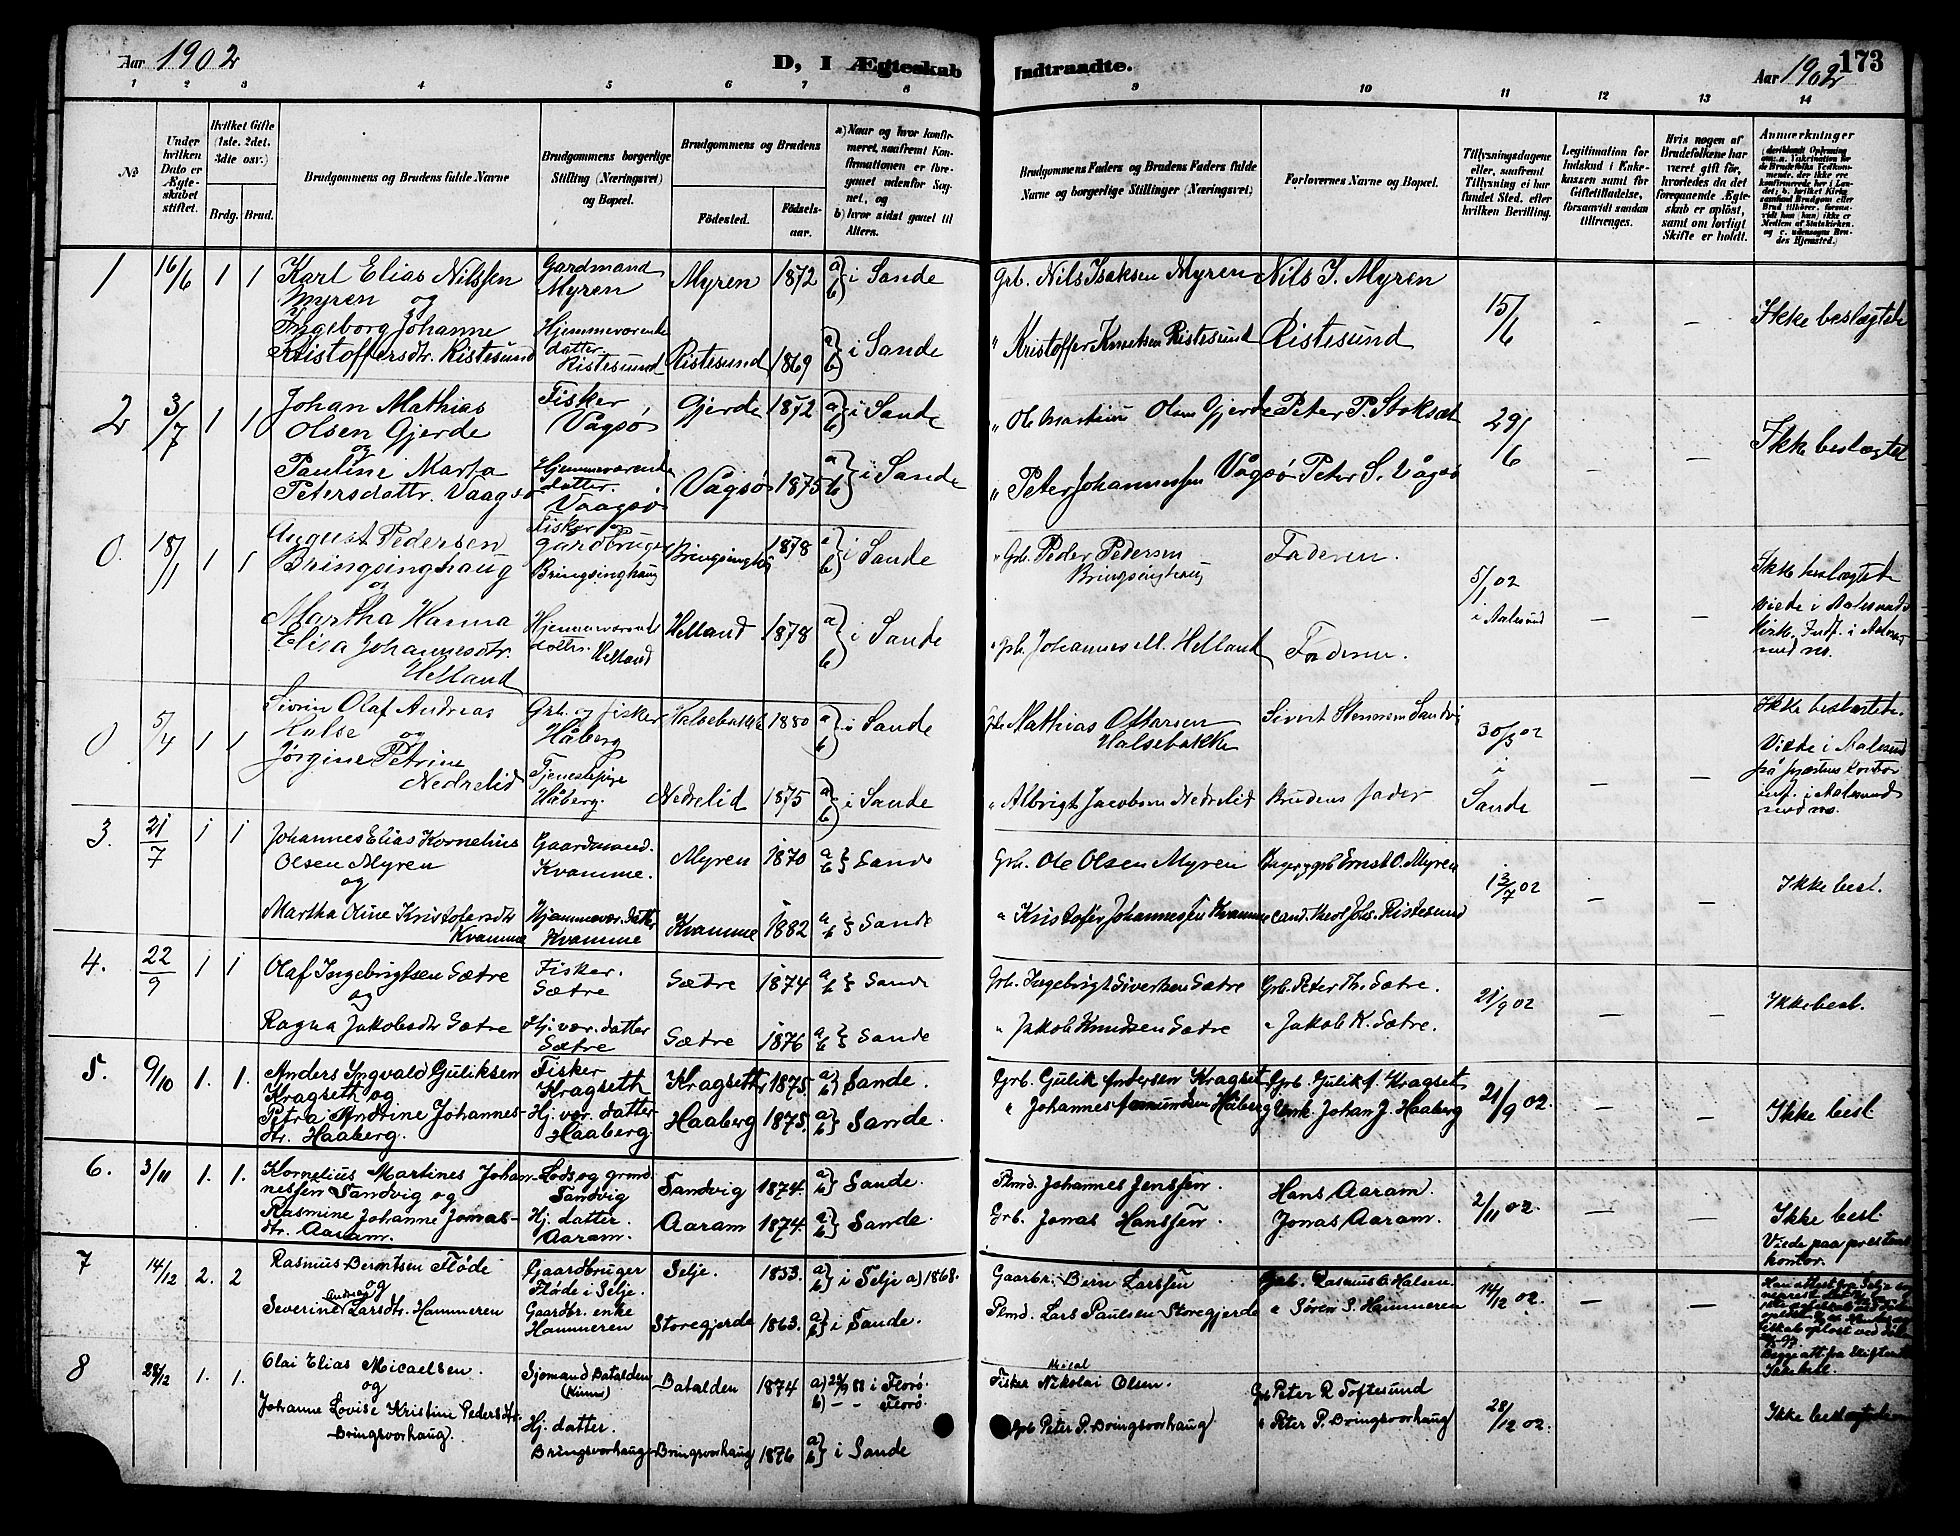 Aar 1902
D, I Ægteskab
Indtraadte.
173
Aar 1902
1 2 3 4 5 6 7 8 9 10 11 12 13 14
No
Under hvilken Dato er Ægteskabet stiftet.
Hvilket Gifte (1ste, 2det, 3die osv.)
Brdg. Brud.
Brudgommens og Brudens fulde Navne
Brudgommens borgerlige Stilling (Næringsvei) og Bopæl.
Brudgommens og Brudens
Fødested.
Fødselsaar.
a) Naar og hvor konfirmeret, saafremt Konfirmationen er foregaaet udenfor Sognet, og
b) hvor sidst gaaet til Alters.
Brudgommens Faders og Brudens Faders fulde Navne og borgerlige Stillinger (Næringsvei)
Forlovernes Navne og Bopæl.
Tillysningsdagene eller, saafremt Tillysning ei har fundet Sted, efter hvilken Bevilling.
Legitimation for Indskud i Enkekassen samt for Giftetilladelse, forsaavidt saadan tiltrænges.
Hvis nogen af Brudefolkene har været gift før, hvorledes da det foregaaende Ægteskab er opløst, samt om lovligt Skifte er holdt.
Anmærkninger
1 16/6 1 1 Karl Elias Nilssen Myren og Gardmand Myren Myren 1872 a) b) i Sande Grb. Nils Isaksen Myren Nils I. Myren 15/6 - - Ikke beslægtede
Ingeborg Johanne Kristoffersdtr. Ristesund Hjemmeværende datter Ristesund Ristesund 1869 a) b) i Sande " Kristoffer Knutsen Ristesund Ristesund
2 3/7 1 1 Johan Mathias Olsen Gjerde og Fisker, Vågsø Gjerde 1872 a) b) i Sande " Ole Martinus Olsen Gjerde Peter P. Stoksæt 29/6 - - Ikke beslægtet
Pauline Marta Petersdattr. Vaagsø Hjemmeværende datter. Vaagsø Vågsø 1875 a) b) i Sande " Peter Johannessen Vågsø Peter S. Vågsø
0. 18/1 1 1 August Pedersen Bringsinghaug og Fisker og gardbruger Bringsinghaug Bringsinghg 1878 a) b) i Sande " Grb. Peder Pedersen Bringsinghaug Faderen. 5/1 02 i Aalesund - - Ikke beslægtede
Martha Hanna Elisa Johannesdtr. Helland Hjemmeværende datter. Helland Helland 1878 a) b) i Sande " Grb. Johannes M. Helland Faderen. Viede i Aalesunds kirke. Indf. i Aalesund med no.
0 5/4 1 1 Sivrin Olaf Andreas Halse og Grb. og fisker Håberg Halsebakke 1880 a) b) i Sande Grb. Mathias Ottarsen Halsebakke Sivert Stenersen Sandvig 30/3 02 i Sande - - Ikke beslægtede.
Jørgine Petrine Nedrelid Tjenestepige Håberg. Nedrelid 1875 a) b) i Sande " Albrigt Jacobsen Nedrelid Brudens fader Viede i Aalesund på præstens kontor inf. i Aalesund med no.
3. 21/7 1 1 Johannes Elias Kornelius Olsen Myren og Gaardmand. Kvamme. Myren 1870 a b } Sande Grb. Ole Olsen Myren Ernst O. Myren 13/7 02 - - Ikke besl.
Martha Oline Kristofersdtr Kvamme Hjemmevær. datter Kvamme Kvamme 1882 a b } Sande " Kristofer Johannessen Kvamme cand. theol Johs. Ristesund
4. 22/9 1 1 Olaf Ingebrigtsen Sætre og Fisker. Sætre Sætre 1874 a b } Sande Grb. Ingebrigt Sivertsen Sætre Grb. Peter Th. Sætre. 21/9 02 - - Ikke besl.
Ragna Jakobsdtr Sætre Hj. vær. datter Sætre Sætre 1876 a b } Sande " Jakob Knudsen Sætre " Jakob K. Sætre.
5. 9/10 1. 1. Anders Ingvald Guliksen Kragseth og Fisker Kragseth Kragseth 1875. a) b) Sande. Grb. Gulik Andersen Kragset Grb. Gulik A. Kragset 21/9 02. - - Ikke besl
Petra Andrine Johannesdtr. Haaberg. Hj. vær. datter Haaberg. Haaberg 1875. a) b) Sande. " Johannes Amundsen Håberg Ungk. Johan J. Haaberg
6. 3/11 1. 1. Kornelius Martines Johannessen Sandvig og Lods og grmd Sandvig Sandvig 1874. a) b) Sande. Plmd. Johannes Jenssen. Hans Aaram. 2/11 02. - - Ikke besl.
Rasmine Johanne Jonasdtr. Aaram. Hj. datter. Aaram. Aaram 1874. a) b) Sande. Grb. Jonas Hanssen. Jonas Aaram. Viede paa prestens kontor.
7 14/12 2. 2 Rasmus Berntsen Fløde og Gaardbruger Fløde i Selje. Selje. 1853. a) b) i Selje a) 1868. Gaarbr. Bern Larssen Grb. Rasmus B. Halsen. 14/12 02. - -
Severine Andrea Larsdtr. Hammeren Gaardbr. enke Hammeren Storegjerde 1863. a) b) i Sande. Plmd. Lars Paulsen Storegjerde " Søren S. Hammeren
8 28/12 1. 1. Olai Elias Micaelsen. og Sjømand Batalden (Kinn) Batalden 1874 a) i Florø. b) - - Florø. Fisker Mical Nikolai Olsen. Grb Peter R Toftesund 28/12 02. Ikke beslægtede
Johanne Lovise Kristine Pedersdtr. Bringsvorhaug. Hj. datter. Bringsvorhaug Bringsvorhaug 1876 a) b) i Sande Grb Peter P. Bringsvorhaug " Peter P. Bringsvorhaug